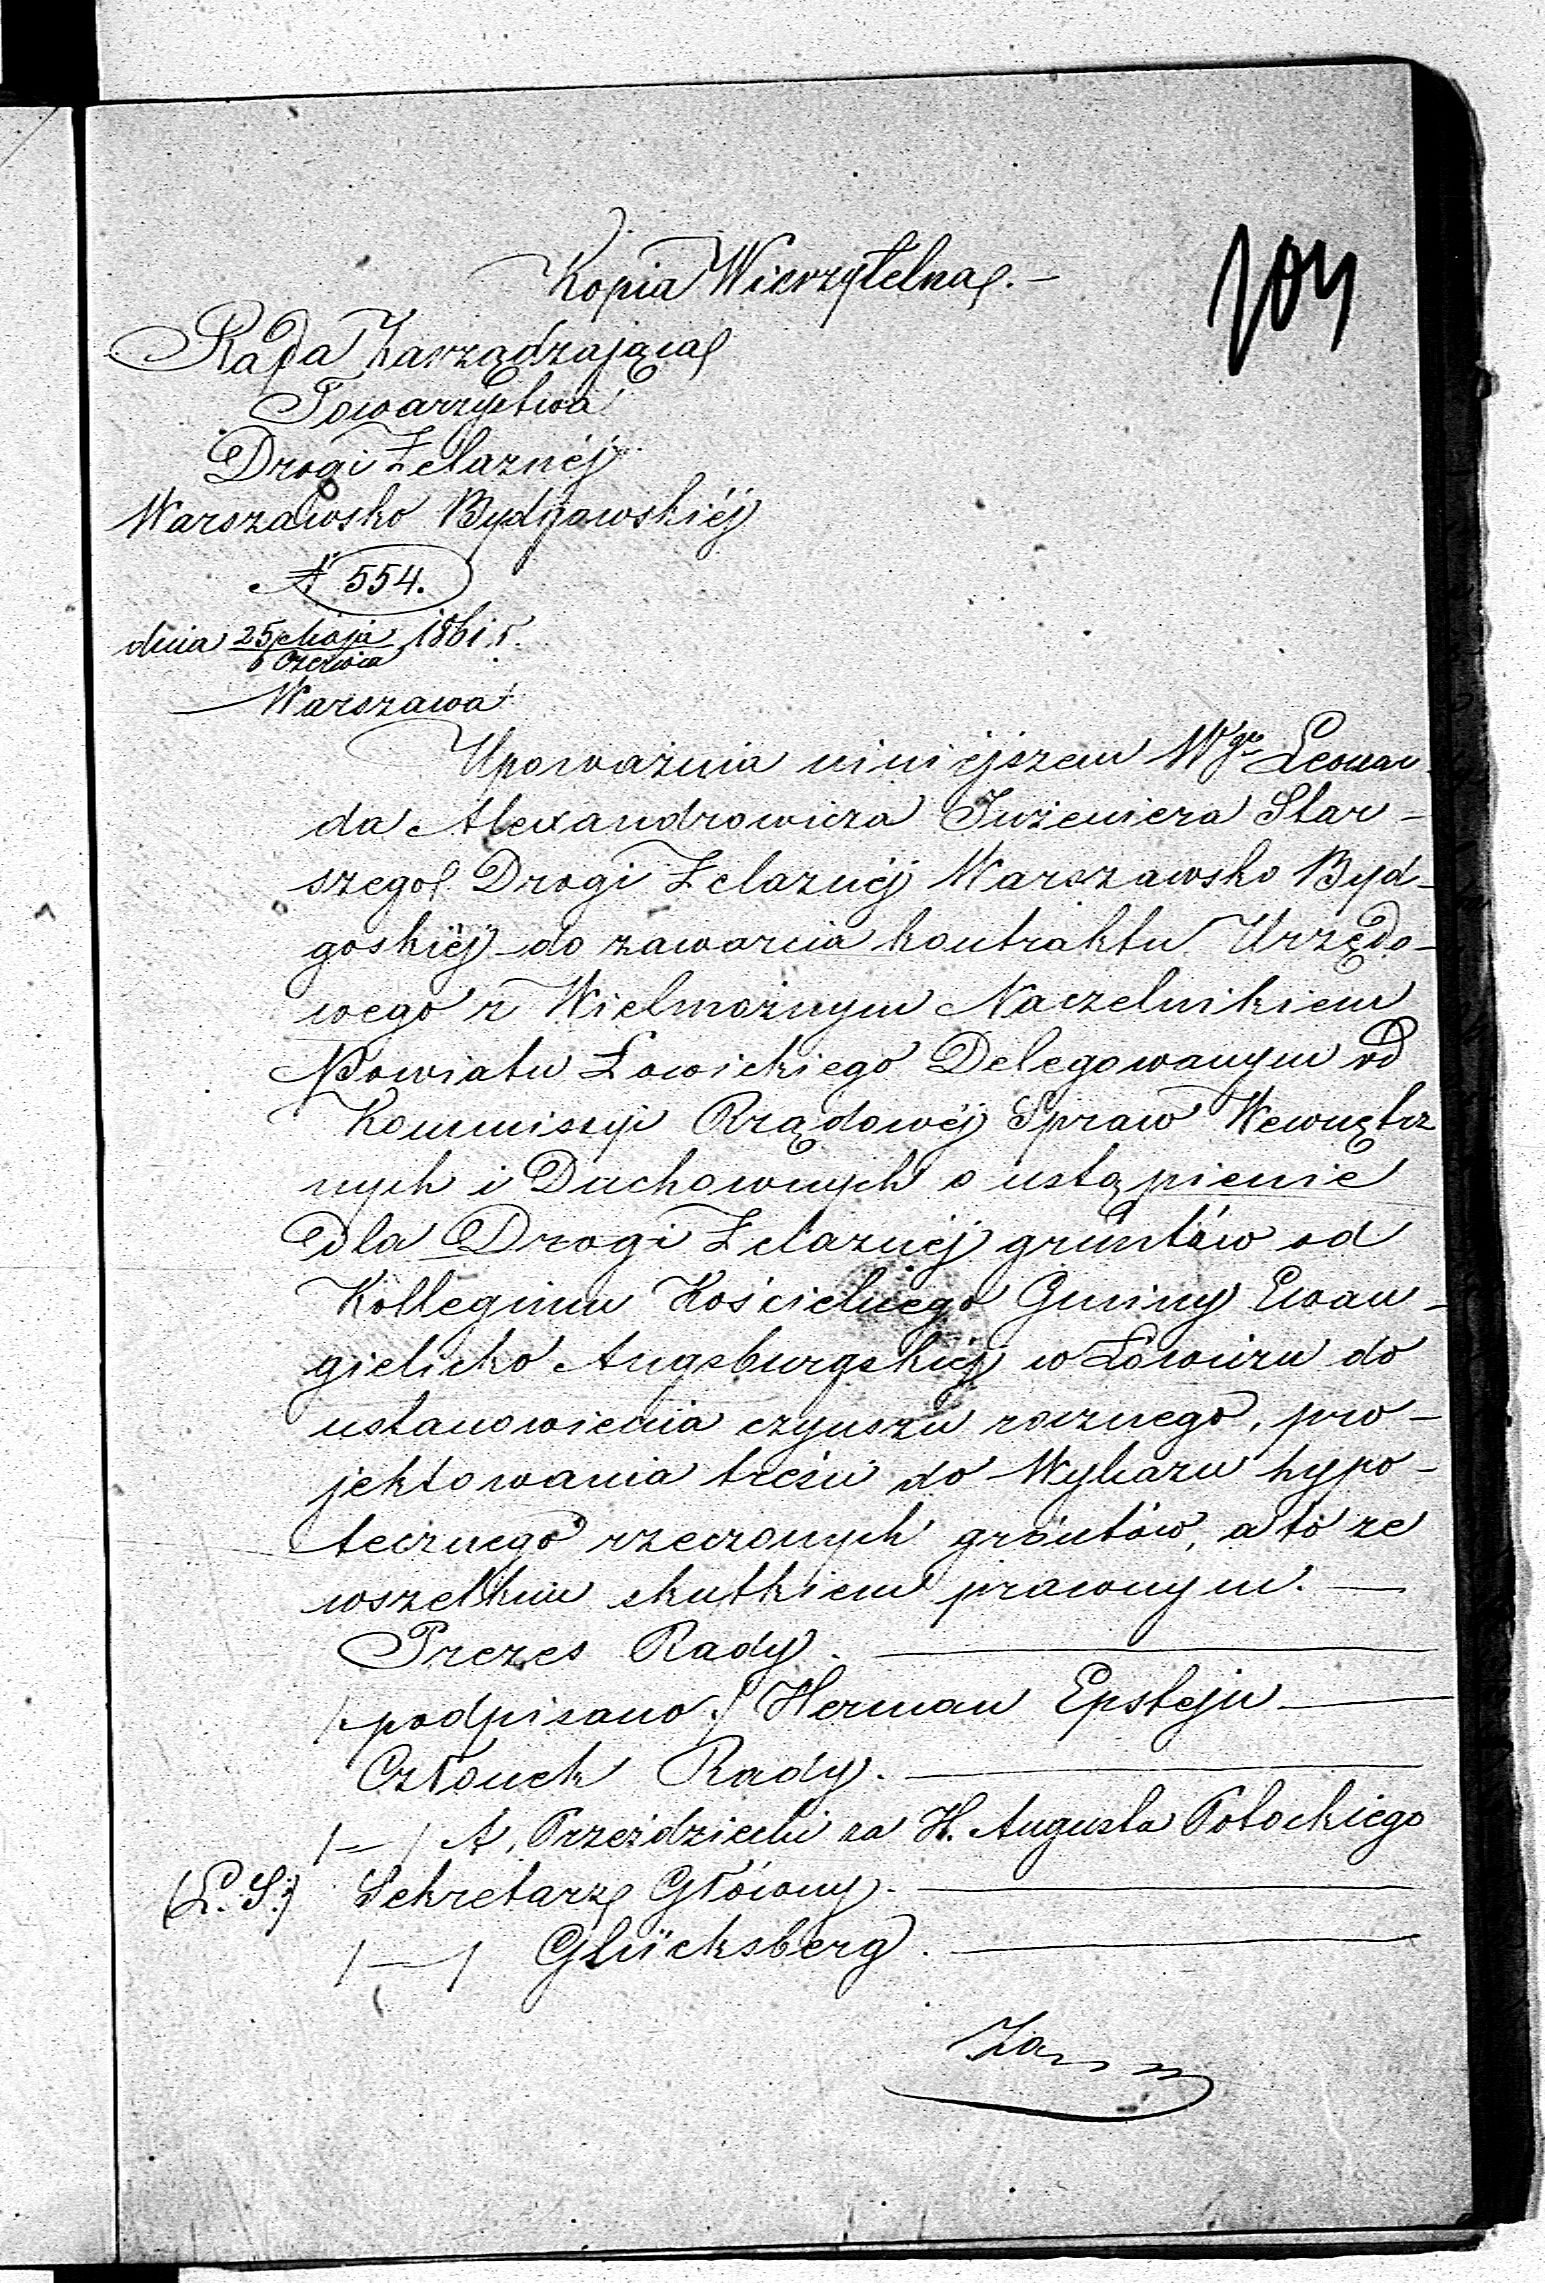 104
Kopia Wierzytelna. —
Rada Zarządzająca
Towarzystwa
Drogi Żelaznéj
Warszawsko Bydgowskiéj
N 554.
dnia 25 Maja / 6 Czerwca 1861 r.
Warszawa
Upoważnia niniejszem Wgo Leonar-
da Alexandrowicza Inżeniera Star-
szego Drogi Żelaznéj Warszawsko Byd-
goskiéj do zawarcia kontraktu Urzędo-
wego z Wielmożnym Naczelnikiem
Powiatu Łowickiego Delegowanym od
Kommissyi Rządowéj Spraw Wewnętrz
nych i Duchownych o ustąpienie
dla Drogi Żelaznéj gruntów od
Kollegium Kościelnego Gminy Ewan-
gielicko Augsburgskiéj w Łowiczu do
ustanowienia czynszu rocznego, pro-
jektowania treści do Wykazu hypo-
tecznego rzeczonych gruntów, a to ze
wszelkim skutkiem prawnym. —
Prezes Rady. —
/podpisano/ Herman Epstejn —
Członek Rady. —
/—/ A. Przezdziecki za H. Augusta Potockiego
(L. S.) Sekretarz Główny. —
/—/ Glücksberg. —